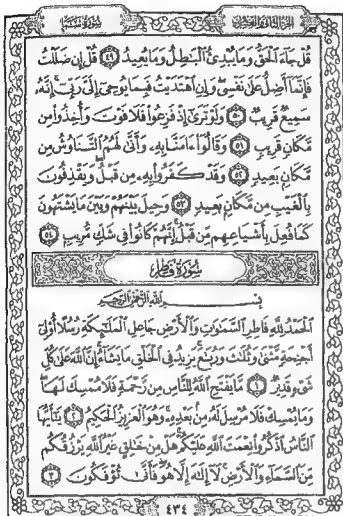 الجزء الثاني والعشرون
سورة سبأ
قُلْ جَآءَ ٱلْحَقُّ وَمَا يُبْدِئُ ٱلْبَٰطِلُ وَمَا يُعِيدُ ٤٩ قُلْ إِن ضَلَلْتُ
فَإِنَّمَآ أَضِلُّ عَلَىٰ نَفْسِى وَإِنِ ٱهْتَدَيْتُ فَبِمَا يُوحِىٓ إِلَىَّ رَبِّىٓ إِنَّهُۥ
سَمِيعٌ قَرِيبٌ ٥٠ وَلَوْ تَرَىٰٓ إِذْ فَزِعُوا۟ فَلَا فَوْتَ وَأُخِذُوا۟ مِن
مَّكَانٍ قَرِيبٍ ٥١ وَقَالُوٓا۟ ءَامَنَّا بِهِۦ وَأَنَّىٰ لَهُمُ ٱلتَّنَاوُشُ مِن
مَّكَانٍۭ بَعِيدٍ ٥٢ وَقَدْ كَفَرُوا۟ بِهِۦ مِن قَبْلُ وَيَقْذِفُونَ
بِٱلْغَيْبِ مِن مَّكَانٍۭ بَعِيدٍ ٥٣ وَحِيلَ بَيْنَهُمْ وَبَيْنَ مَا يَشْتَهُونَ
كَمَا فُعِلَ بِأَشْيَاعِهِم مِّن قَبْلُ إِنَّهُمْ كَانُوا۟ فِى شَكٍّ مُّرِيبٍۭ ٥٤
سُورَةُ فَاطِرٍ
بِسْمِ ٱللَّهِ ٱلرَّحْمَٰنِ ٱلرَّحِيمِ
ٱلْحَمْدُ لِلَّهِ فَاطِرِ ٱلسَّمَٰوَٰتِ وَٱلْأَرْضِ جَاعِلِ ٱلْمَلَٰٓئِكَةِ رُسُلًا أُو۟لِىٓ
أَجْنِحَةٍ مَّثْنَىٰ وَثُلَٰثَ وَرُبَٰعَ يَزِيدُ فِى ٱلْخَلْقِ مَا يَشَآءُ إِنَّ ٱللَّهَ عَلَىٰ كُلِّ
شَىْءٍ قَدِيرٌ ١ مَّا يَفْتَحِ ٱللَّهُ لِلنَّاسِ مِن رَّحْمَةٍ فَلَا مُمْسِكَ لَهَا
وَمَا يُمْسِكْ فَلَا مُرْسِلَ لَهُۥ مِنۢ بَعْدِهِۦ وَهُوَ ٱلْعَزِيزُ ٱلْحَكِيمُ ٢ يَٰٓأَيُّهَا
ٱلنَّاسُ ٱذْكُرُوا۟ نِعْمَتَ ٱللَّهِ عَلَيْكُمْ هَلْ مِنْ خَٰلِقٍ غَيْرُ ٱللَّهِ يَرْزُقُكُم
مِّنَ ٱلسَّمَآءِ وَٱلْأَرْضِ لَآ إِلَٰهَ إِلَّا هُوَ فَأَنَّىٰ تُؤْفَكُونَ ٣
٤٣٤